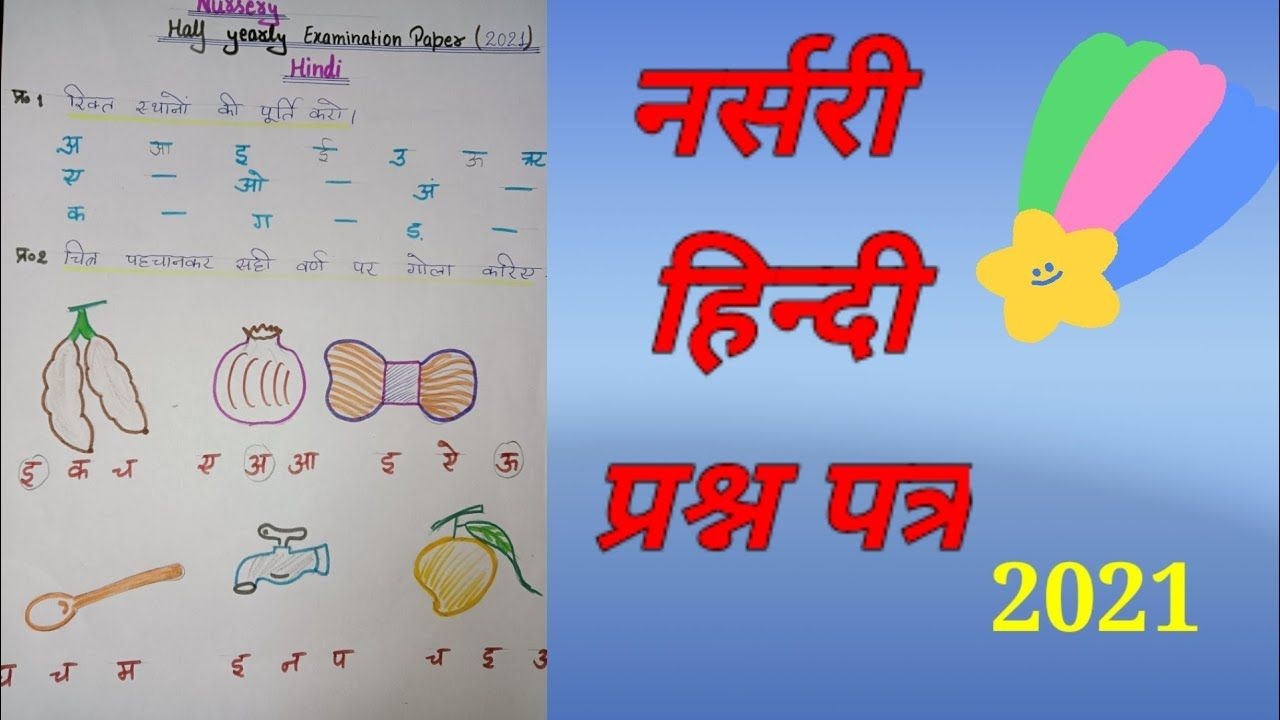 Nursery
Half yearly Examination Paper (2021)
Hindi
प्र०1 रिक्त स्थानों की पूर्ति करो।
अ आ इ ई उ ऊ ऋ
ए — ओ — अं —
क — ग — ङ —
प्र०2 चित्र पहचानकर सही वर्ण पर गोला करिए
इ क च ए अ आ इ ऐ ऊ
च म इ न प च इ
नर्सरी
हिन्दी
प्रश्न पत्र
2021